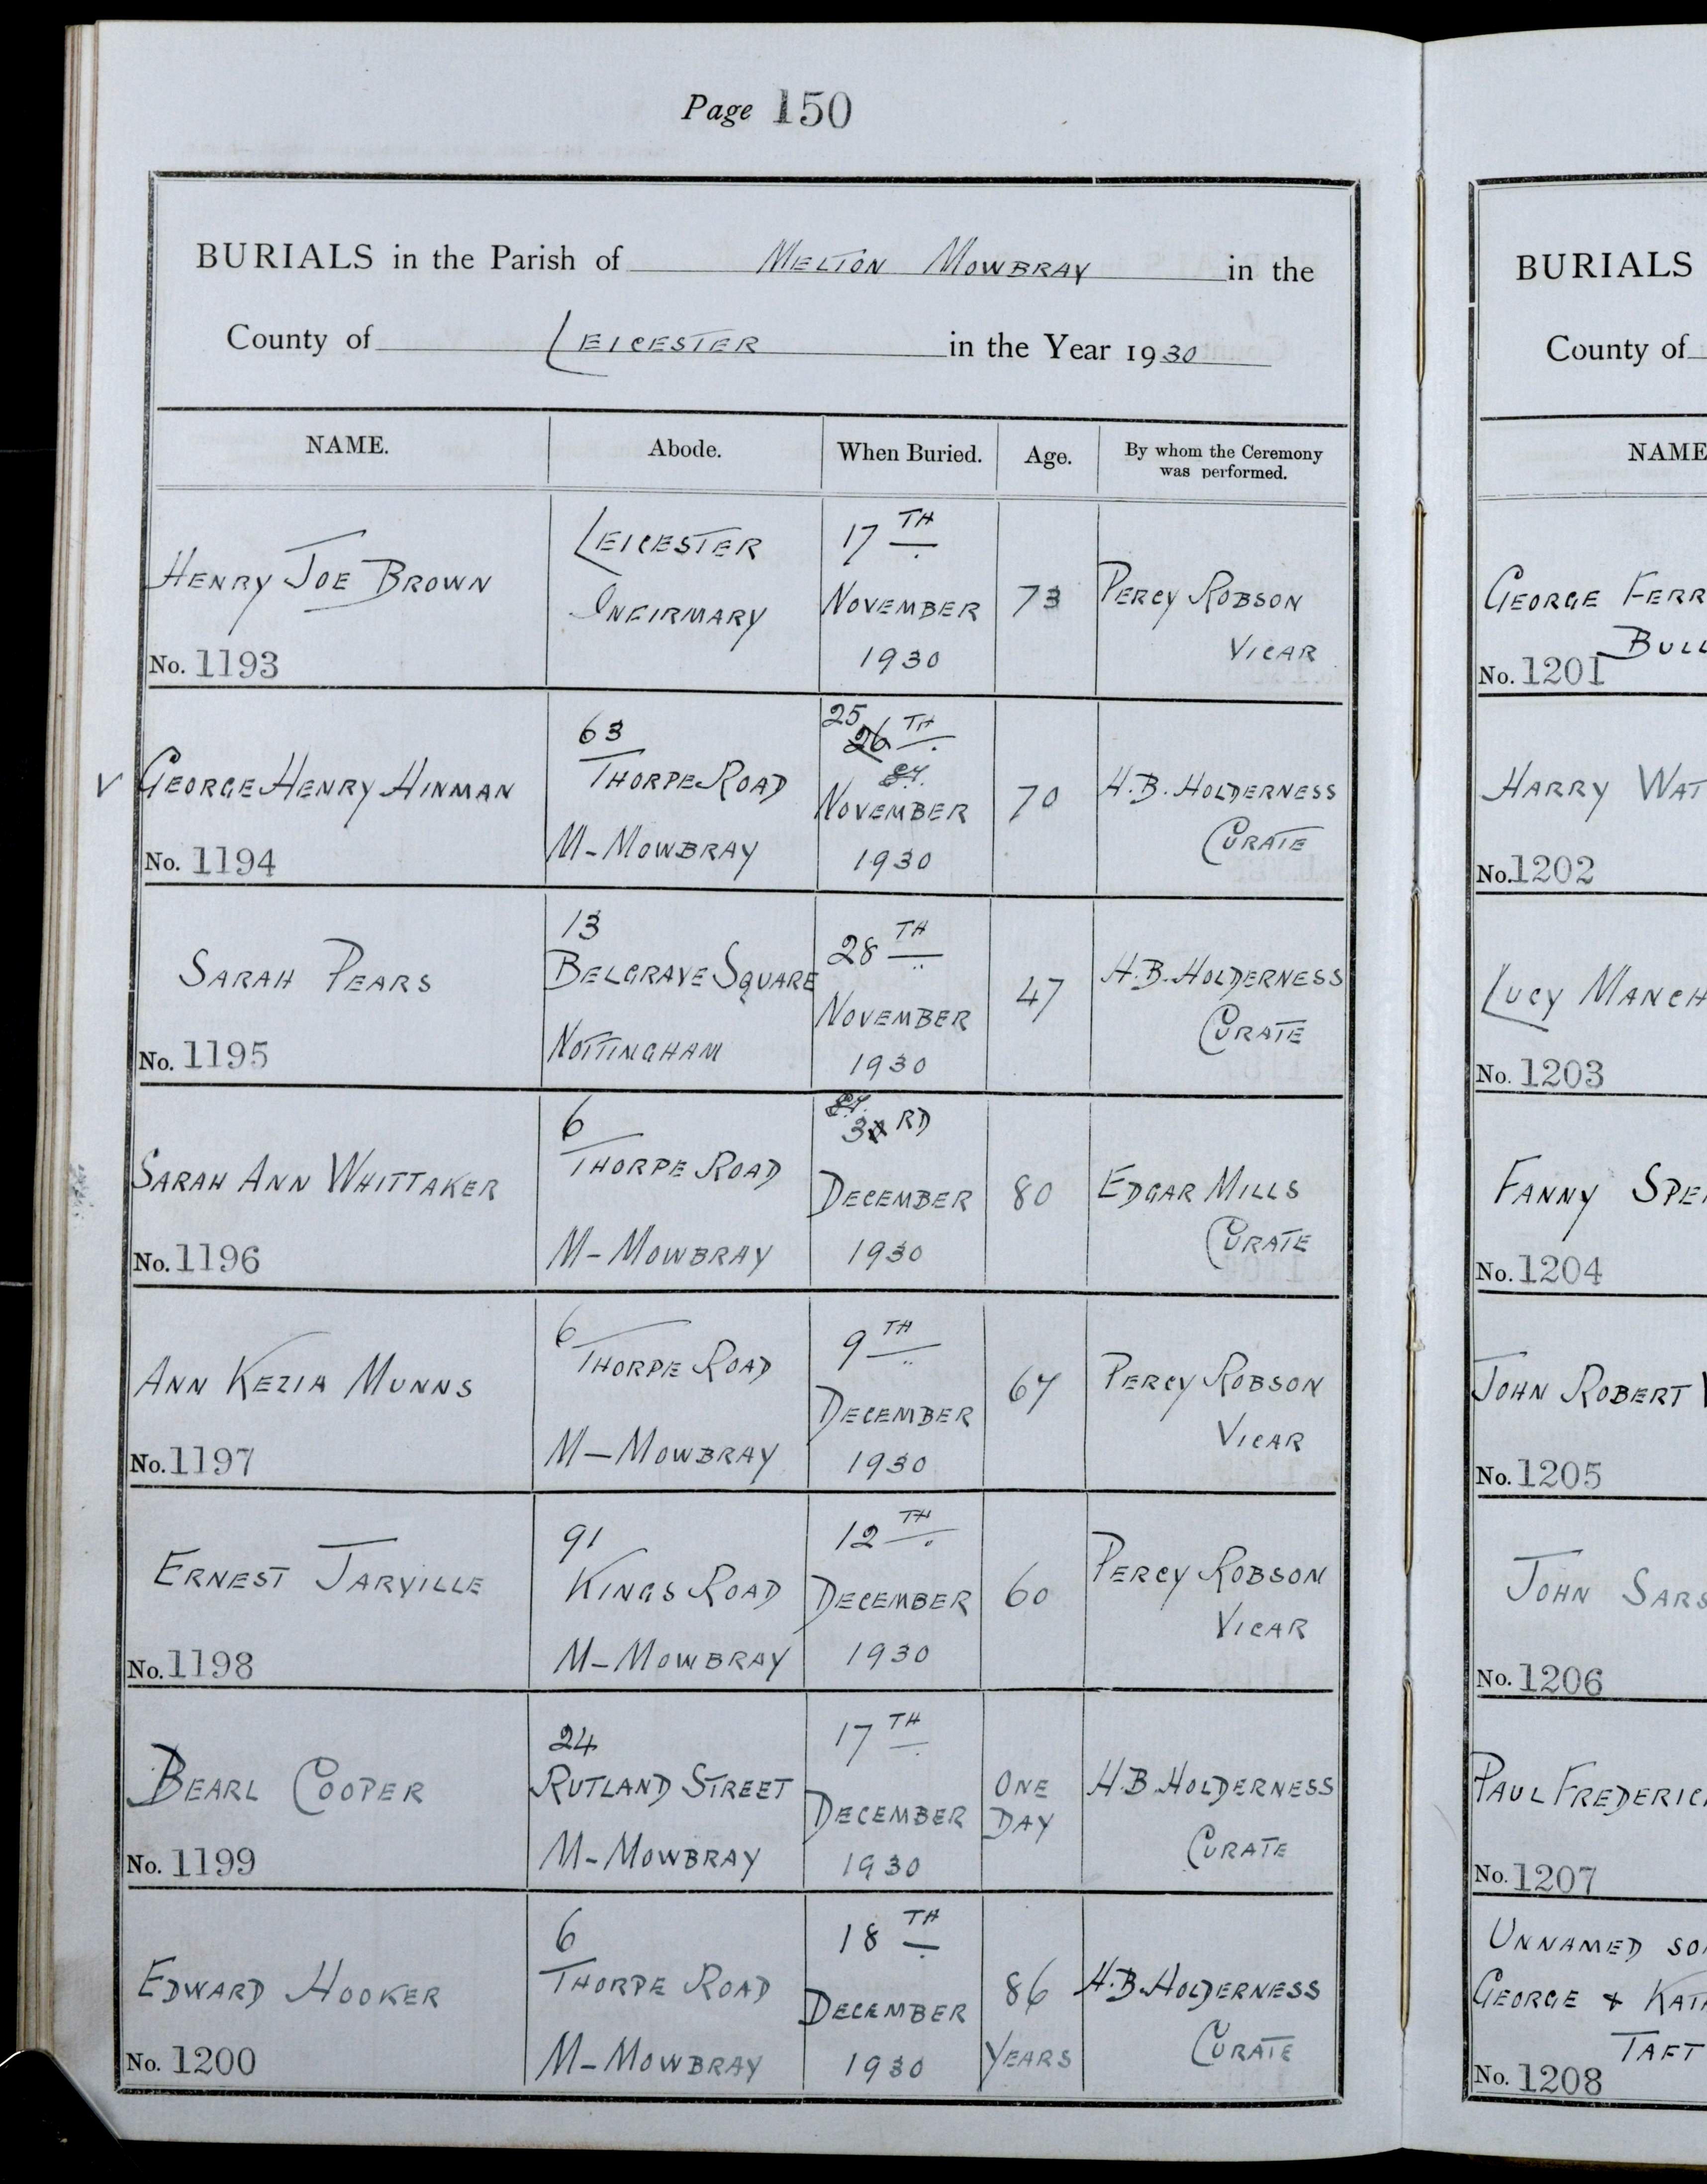 Page 150
BURIALS in the Parish of MELTON MOWBRAY in the
County of LEICESTER in the Year 1930
NAME. Abode. When Buried. Age. By whom the Ceremony was performed.
HENRY JOE BROWN
No. 1193
LEICESTER
INFIRMARY
17TH
NOVEMBER
1930
73
PERCY ROBSON
VICAR
V GEORGE HENRY HINMAN
No. 1194
63
THORPE ROAD
M-MOWBRAY
25
26TH
NOVEMBER
1930
70
H.B. HOLDERNESS
CURATE
SARAH PEARS
No. 1195
13
BELGRAVE SQUARE
NOTTINGHAM
28TH
NOVEMBER
1930
47
H.B. HOLDERNESS
CURATE
SARAH ANN WHITTAKER
No. 1196
6
THORPE ROAD
M-MOWBRAY
3RD
DECEMBER
1930
80
EDGAR MILLS
CURATE
ANN KEZIA MUNNS
No. 1197
6
THORPE ROAD
M-MOWBRAY
9TH
DECEMBER
1930
67
PERCY ROBSON
VICAR
ERNEST JARVILLE
No. 1198
91
KINGS ROAD
M-MOWBRAY
12TH
DECEMBER
1930
60
PERCY ROBSON
VICAR
BEARL COOPER
No. 1199
24
RUTLAND STREET
M-MOWBRAY
17TH
DECEMBER
1930
ONE
DAY
H.B. HOLDERNESS
CURATE
EDWARD HOOKER
No. 1200
6
THORPE ROAD
M-MOWBRAY
18TH
DECEMBER
1930
86
YEARS
H.B. HOLDERNESS
CURATE
BURIALS
County of
NAME
GEORGE FERR
BULL
No. 1201
HARRY WAT
No. 1202
LUCY MANCH
No. 1203
FANNY SPE
No. 1204
JOHN ROBERT
No. 1205
JOHN SARS
No. 1206
PAUL FREDERICK
No. 1207
UNNAMED SON
GEORGE & KAT
TAFT
No. 1208